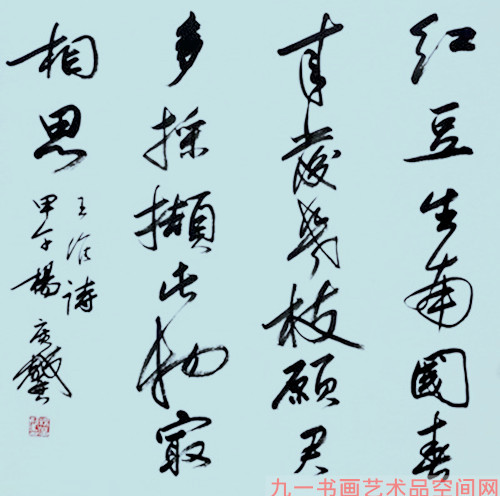 红豆生南國春
来發幾枝願君
多採擷此物冣
相思
王维詩
甲午楊
九一书画艺术品空间网